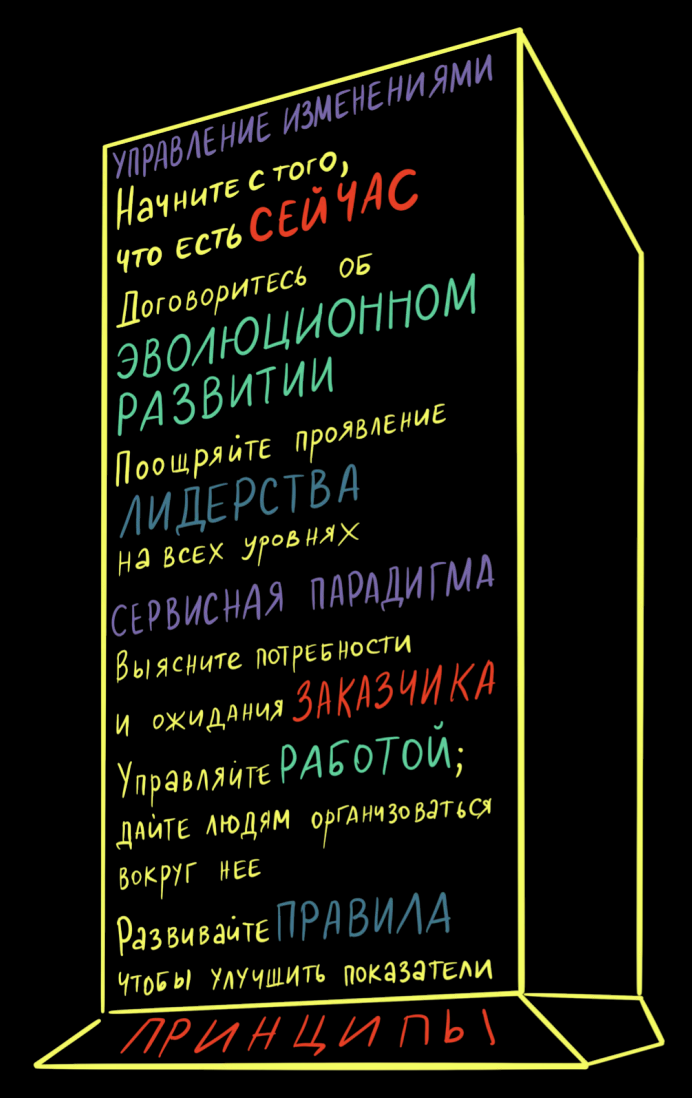 УПРАВЛЕНИЕ ИЗМЕНЕНИЯМИ
Начните с того,
что есть СЕЙЧАС
Договоритесь об
ЭВОЛЮЦИОННОМ
РАЗВИТИИ
Поощряйте проявление
ЛИДЕРСТВА
на всех уровнях
СЕРВИСНАЯ ПАРАДИГМА
Выясните потребности
и ожидания ЗАКАЗЧИКА
Управляйте РАБОТОЙ;
дайте людям организоваться
вокруг нее
Развивайте ПРАВИЛА
чтобы улучшить показатели
ПРИНЦИПЫ